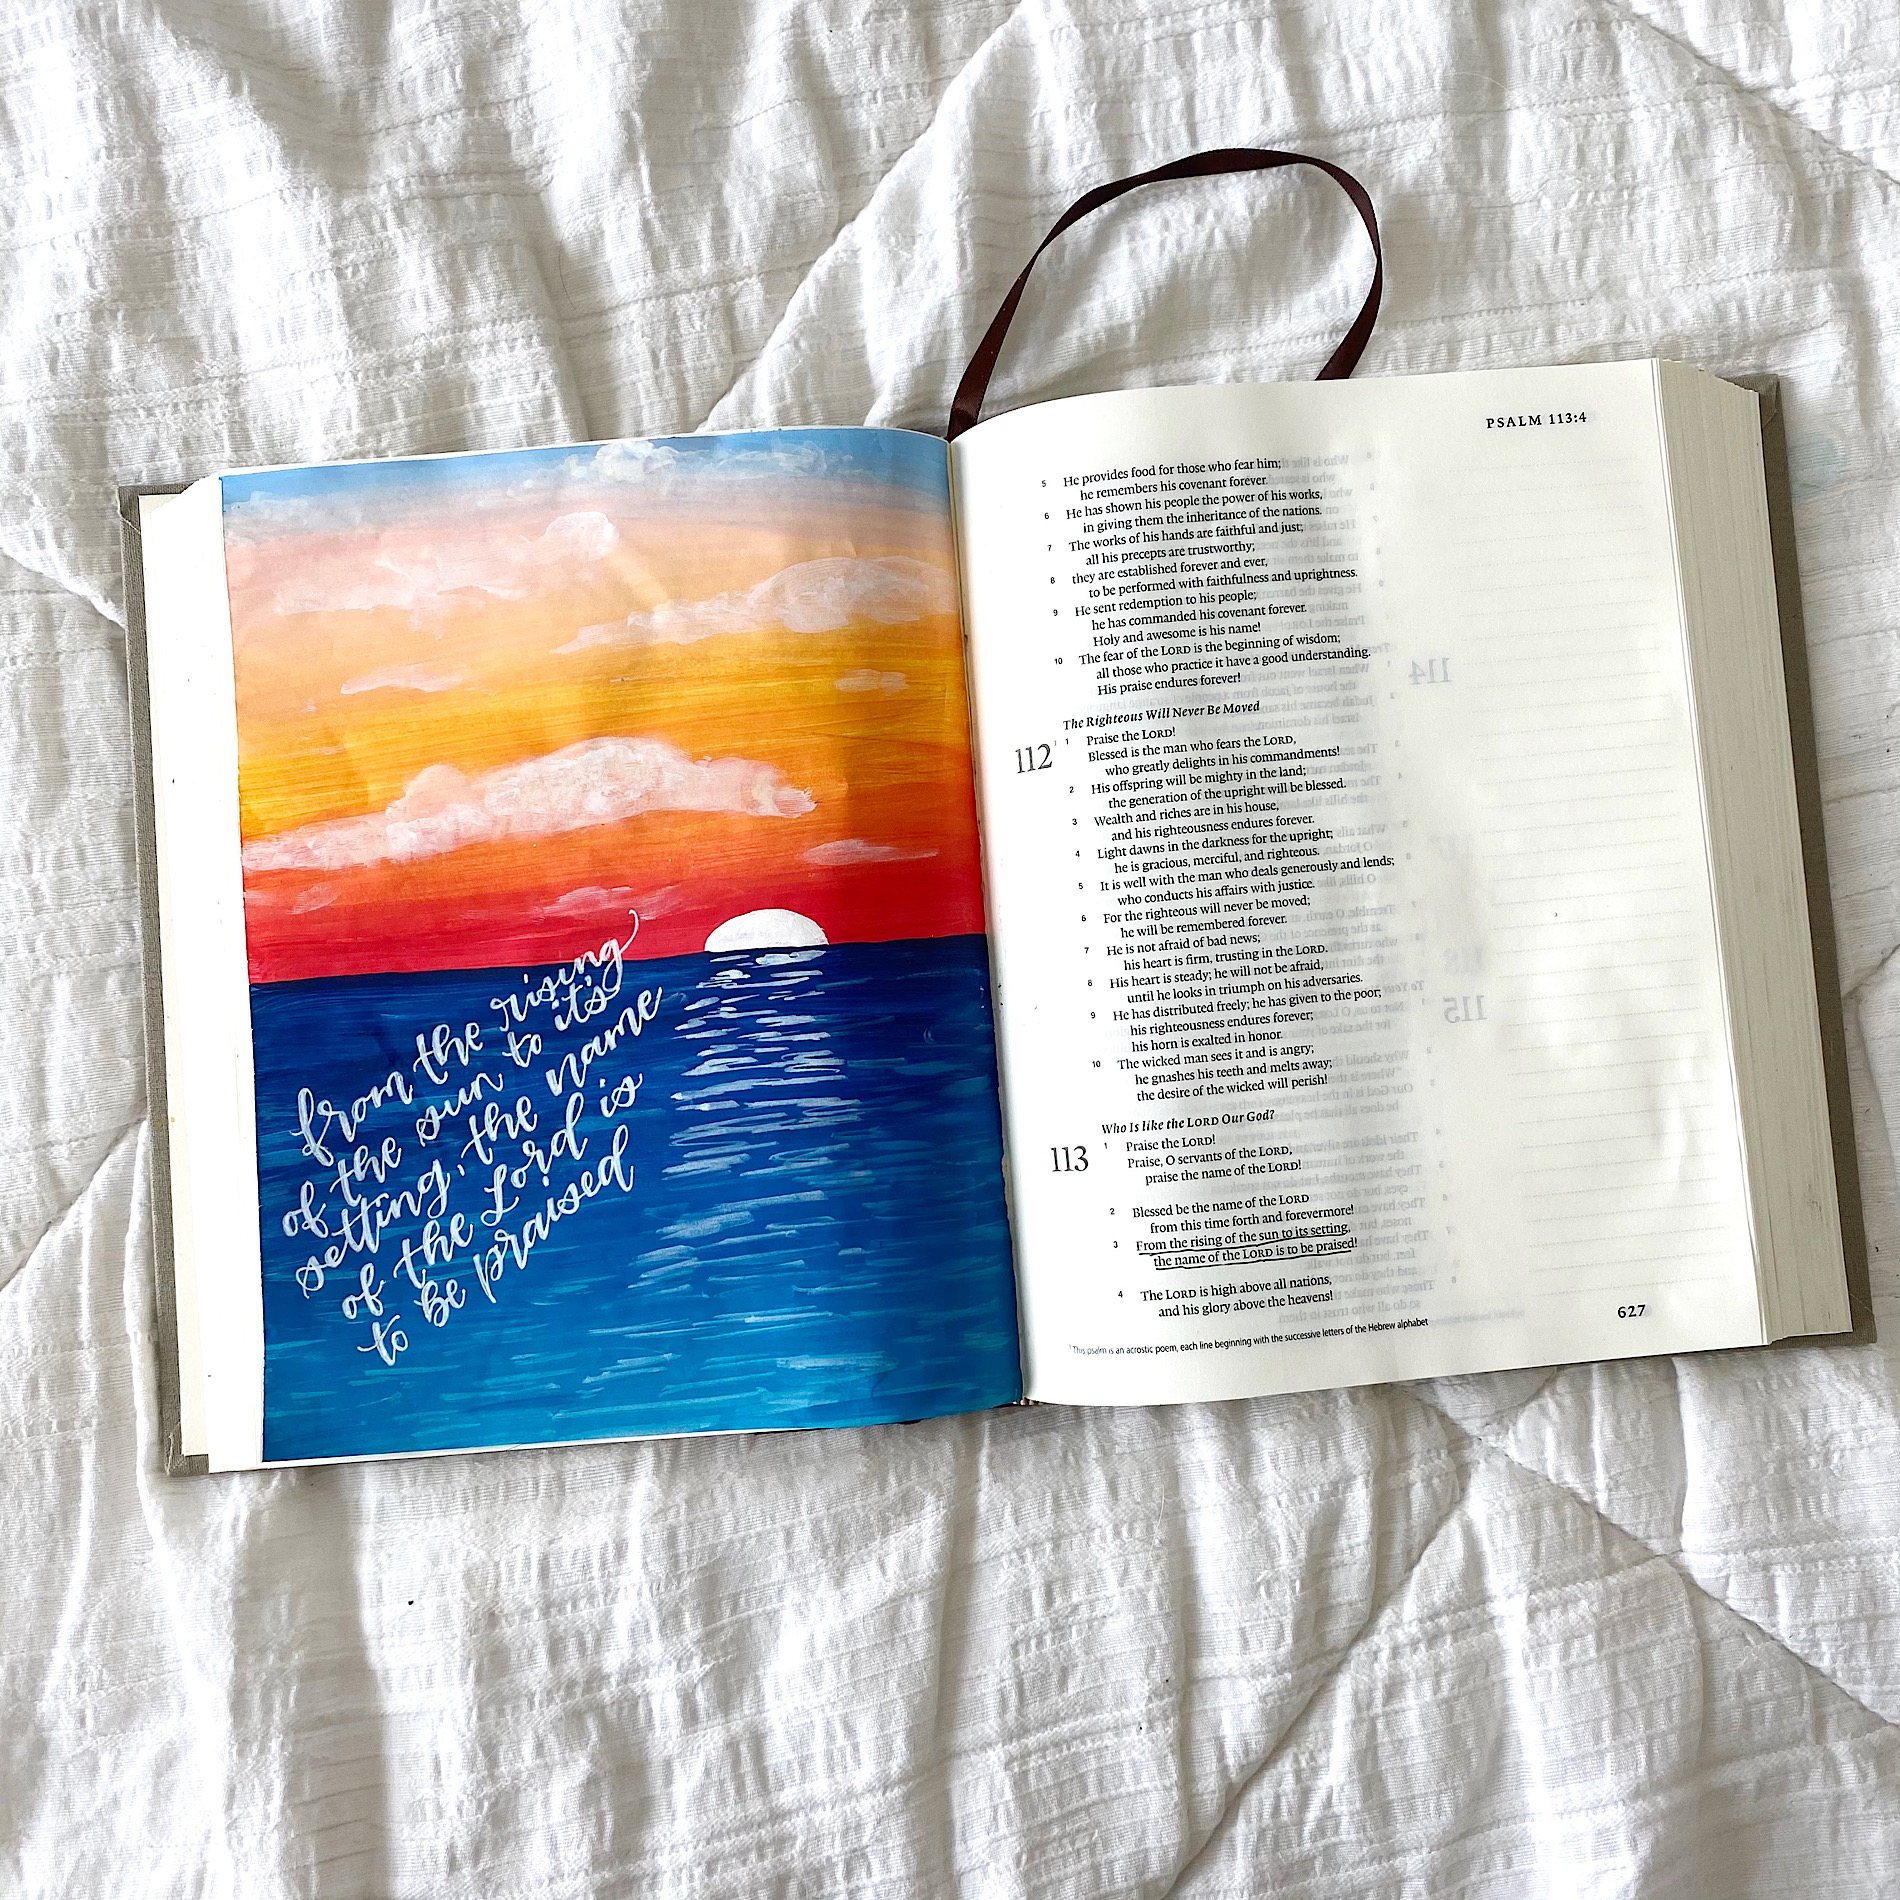 from the rising
of the sun to it's
setting, the name
of the Lord is
to be praised
PSALM 113:4
5 He provides food for those who fear him;
he remembers his covenant forever.
6 He has shown his people the power of his works,
in giving them the inheritance of the nations.
7 The works of his hands are faithful and just;
all his precepts are trustworthy;
8 they are established forever and ever,
to be performed with faithfulness and uprightness.
9 He sent redemption to his people;
he has commanded his covenant forever.
Holy and awesome is his name!
10 The fear of the LORD is the beginning of wisdom;
all those who practice it have a good understanding.
His praise endures forever!
The Righteous Will Never Be Moved
112 1 1 Praise the LORD!
Blessed is the man who fears the LORD,
who greatly delights in his commandments!
2 His offspring will be mighty in the land;
the generation of the upright will be blessed.
3 Wealth and riches are in his house,
and his righteousness endures forever.
4 Light dawns in the darkness for the upright;
he is gracious, merciful, and righteous.
5 It is well with the man who deals generously and lends;
who conducts his affairs with justice.
6 For the righteous will never be moved;
he will be remembered forever.
7 He is not afraid of bad news;
his heart is firm, trusting in the LORD.
8 His heart is steady; he will not be afraid,
until he looks in triumph on his adversaries.
9 He has distributed freely; he has given to the poor;
his righteousness endures forever;
his horn is exalted in honor.
10 The wicked man sees it and is angry;
he gnashes his teeth and melts away;
the desire of the wicked will perish!
Who Is like the LORD Our God?
113 1 Praise the LORD!
Praise, O servants of the LORD,
praise the name of the LORD!
2 Blessed be the name of the LORD
from this time forth and forevermore!
3 From the rising of the sun to its setting,
the name of the LORD is to be praised!
4 The LORD is high above all nations,
and his glory above the heavens!
1 This psalm is an acrostic poem, each line beginning with the successive letters of the Hebrew alphabet
627